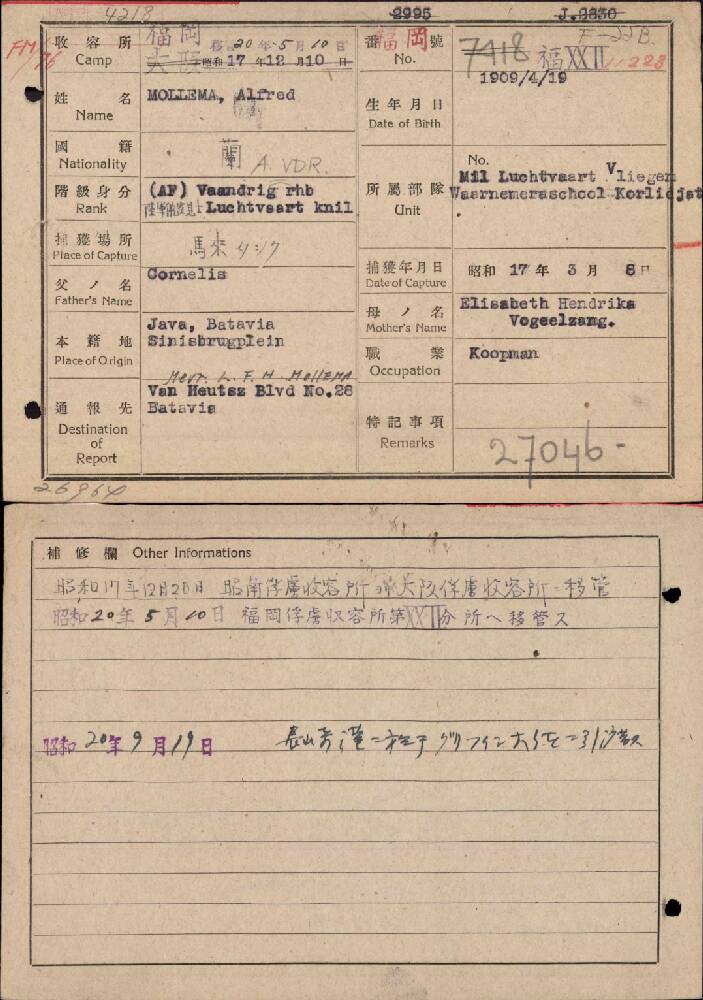 4218
2995
J.2830
F-22B.
收容所 福岡 移 20年5月10日
Camp 大阪 昭和17年12月10日
番福岡號 7418 福XXII
No.
姓名 MOLLEMA, Alfred
Name
生年月日 1909/4/19
Date of Birth
國籍 蘭 A. VDR.
Nationality
階級身分 (AF) Vaandrig rhb
Rank Luchtvaart knil
所屬部隊 No.
Unit Mil Luchtvaart Vliegen
Waarnemersschool Korlidjat
捕獲場所 馬來
Place of Capture
捕獲年月日 昭和17年3月8日
Date of Capture
父ノ名 Cornelis
Father's Name
母ノ名 Elisabeth Hendrika
Mother's Name Vogeelzang.
本籍地 Java, Batavia
Place of Origin Sinisbrugplein
職業 Koopman
Occupation
Mevr. L. F. H. MOLLEMA
通報先 Van Heutsz Blvd No.28
Destination of Report Batavia
特記事項
Remarks 27046-
26964
補修欄 Other Informations
昭和17年12月20日 昭南俘虜收容所ヨリ大阪俘虜收容所ニ移管
昭和20年5月10日 福岡俘虜収容所第XXII分所ヘ移管ス
昭和20年9月19日